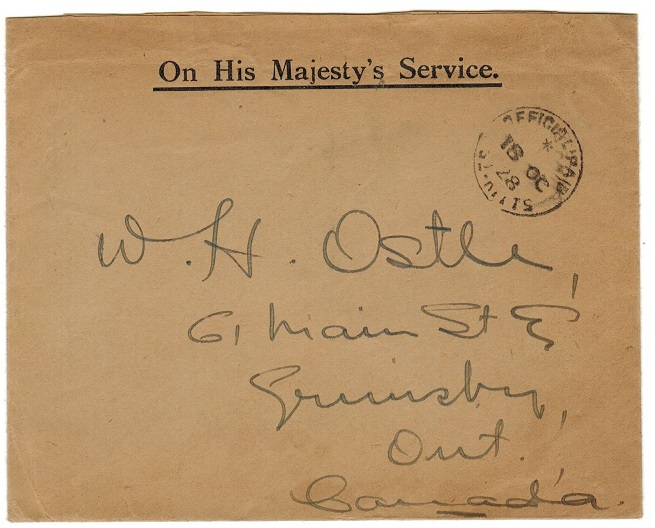 On His Majesty's Service.
OFFICIAL PAID
18 OC
28
W. H. Ostle,
61 Main St E
Grimsby,
Ont.
Canada.